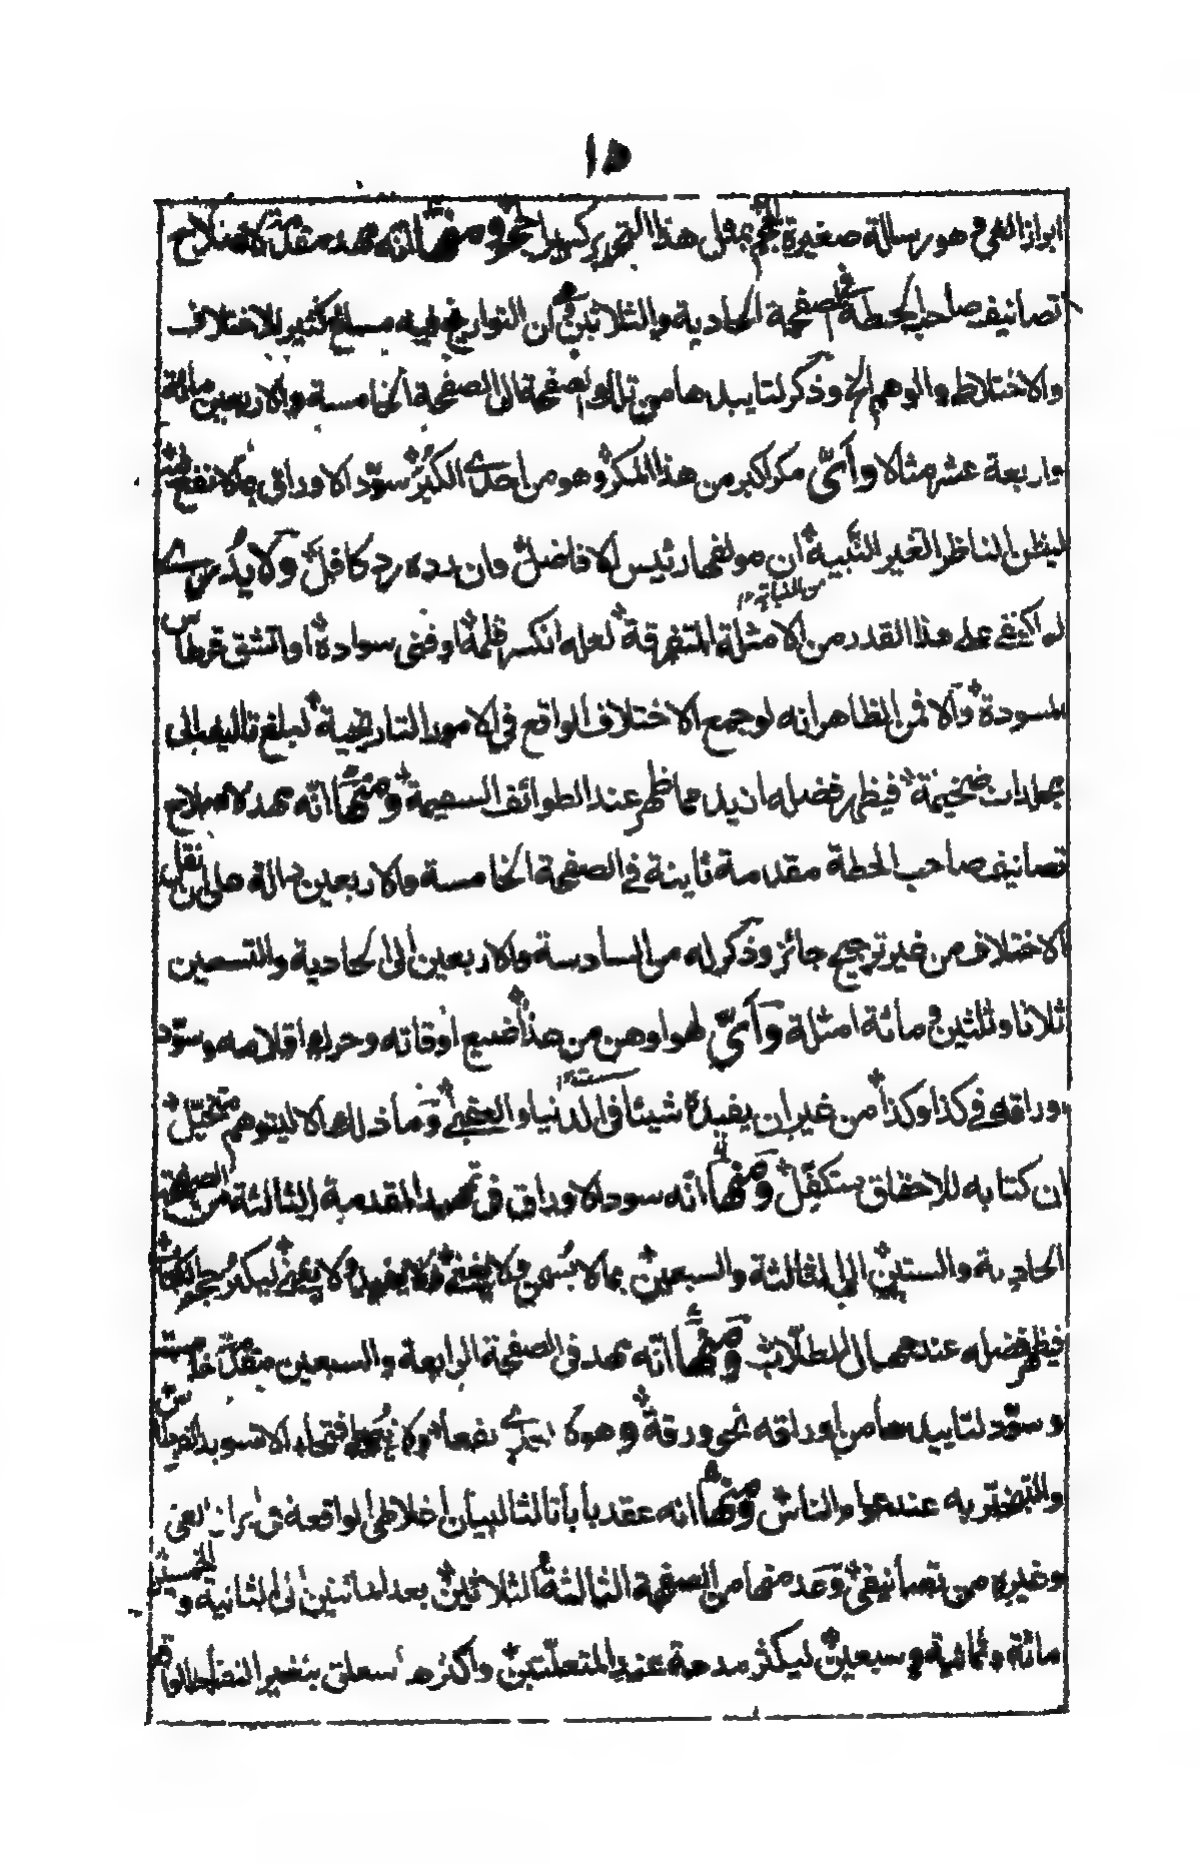 ١٥
ابراز الغي وهو رسالة صغيرة الحجم بمثل هذا التحرير كبيرا لحجم ومنها انه مهد مقدمة لاصلاح
تصانيف صاحب الحطة في الصفحة الحادية والثلاثين في ان التواريخ فيه مساغ كثير للاختلاف
والاختلاط والوهم الخ وذكر لتاييدها من تلك الصفحة الى الصفحة الخامسة والاربعين مائة
واربعة عشر مثالا وأيّ مكر اكبر من هذا المكر وهو من احدى الكبر سوّد الاوراق بما لا نفع فيه
ليظن الناظر الغير النبيه ان مولفها رئيس الافاضل وان رده رد كافل ولا يدرى
لم اكتفى على هذا القدر من الامثلة المتفرقة لعله انكسر قلمه او فنى سواده او انشق قرطاس
المسودة والا فمن الظاهر انه لو جمع الاختلاف الواقع في الامور التاريخية لبلغ تاليفه الى
مجلدات ضخيمة فيظهر فضله ازيد مما ظهر عند الطوائف السفيهة ومنها انه مهد لاصلاح
تصانيف صاحب الحطة مقدمة ثانية في الصفحة الخامسة والاربعين دالة على ان نقل
الاختلاف من غير ترجيح جائز وذكر له من السادسة والاربعين الى الحادية والتسعين
ثلاثا وثلثين ومائة امثلة وأيّ لهو اوهن من هذا ضيع اوقاته وحرك اقلامه وسوّد
اوراقه في كذا وكذا من غير ان يفيده شيئا في الدنيا والعقبى وما ذلك الا ليتوهم متخيل
ان كتابه للاحقاق متكفل ومنها انه سود الاوراق في تمهيد المقدمة الثالثة من الصفحة
الحادية والستين الى الثالثة والسبعين بما لا يسمن ولا يغنى ولا يفيد ولا يقنى ليكبر حجم الكتاب
فيظهر فضله عند جهال الطلاب ومنها انه مهد في الصفحة الرابعة والسبعين مقدمة خامسة
وسوّد لتاييدها من اوراقه نحو ورقة وهو لا يجدى نفعا
والتبختر به عند عوام الناس ومنها انه عقد بابا ثالثا لبيان اغلاطى الواقعة في ابراز الغي
وغيره من تصانيفى وعد منها من الصفحة الثالثة الثلاثين بعد المائتين الى الثانية والخمسين
مائة وثمانية وسبعين ليكثر مدحة عند المتعلمين واكثرها